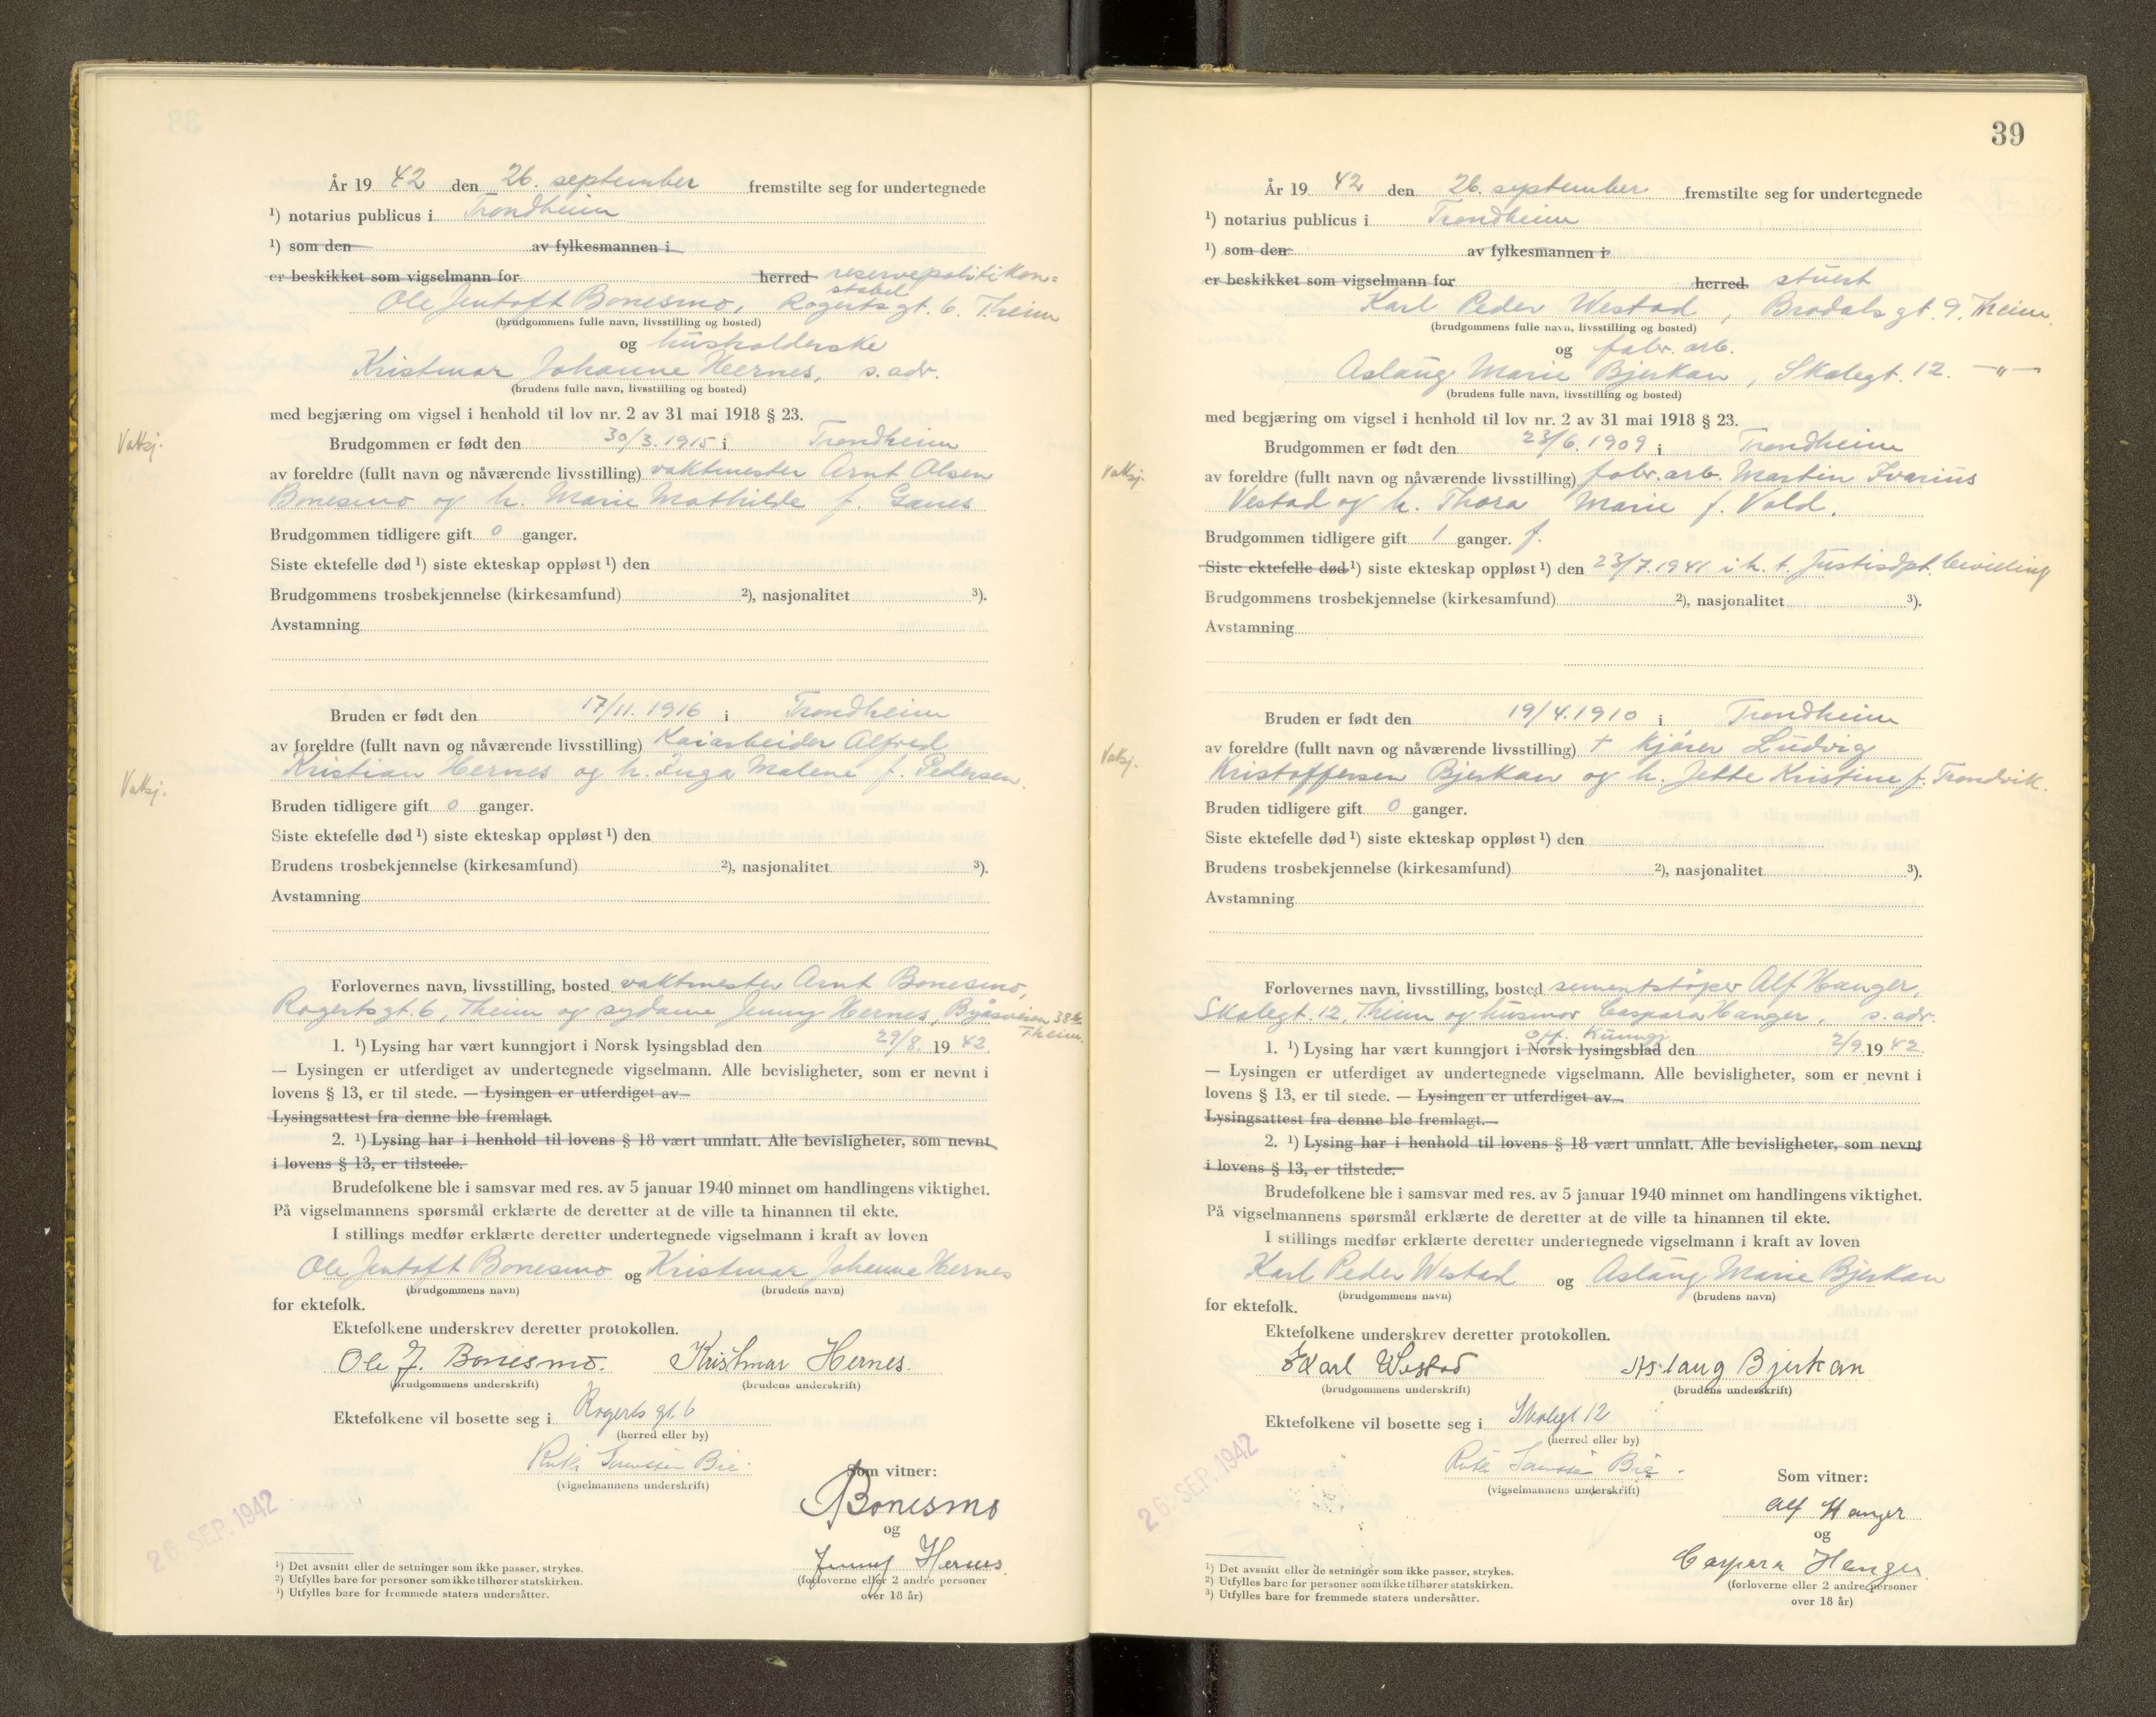 År 19 42 den 26. september fremstilte seg for undertegnede
¹) notarius publicus i Trondheim
¹) som den av fylkesmannen i
er beskikket som vigselmann for herred reservepolitikon=
stabel
Ole Jentoft Bonesmo, Rogertsgt. 6. Theim
(brudgommens fulle navn, livsstilling og bosted)
og husholderske
Kristmar Johanne Hernes, s. adr.
(brudens fulle navn, livsstilling og bosted)
med begjæring om vigsel i henhold til lov nr. 2 av 31 mai 1918 § 23.
Vatsj. Brudgommen er født den 30/3. 1915 i Trondheim
av foreldre (fullt navn og nåværende livsstilling) vaktmester Arnt Olsen
Bonesmo og h. Marie Mathilde f. Ganes
Brudgommen tidligere gift 0 ganger.
Siste ektefelle død ¹) siste ekteskap oppløst ¹) den
Brudgommens trosbekjennelse (kirkesamfund) ²), nasjonalitet ³).
Avstamning
Bruden er født den 17/11. 1916 i Trondheim
av foreldre (fullt navn og nåværende livsstilling) Kaiarbeider Alfred
Kristian Hernes og h. Inga Malene f. Pedersen.
Vatsj.
Bruden tidligere gift 0 ganger.
Siste ektefelle død ¹) siste ekteskap oppløst ¹) den
Brudens trosbekjennelse (kirkesamfund) ²), nasjonalitet ³).
Avstamning
Forlovernes navn, livsstilling, bosted vaktmester Arnt Bonesmo,
Rogertsgt. 6, Theim og sydame Jenny Hernes, Byåsveien 38
Theim.
1. ¹) Lysing har vært kunngjort i Norsk lysingsblad den 29/8. 19 42.
— Lysingen er utferdiget av undertegnede vigselmann. Alle bevisligheter, som er nevnt i
lovens § 13, er til stede. — Lysingen er utferdiget av
Lysingsattest fra denne ble fremlagt.
2. ¹) Lysing har i henhold til lovens § 18 vært unnlatt. Alle bevisligheter, som nevnt
i lovens § 13, er tilstede.
Brudefolkene ble i samsvar med res. av 5 januar 1940 minnet om handlingens viktighet.
På vigselmannens spørsmål erklærte de deretter at de ville ta hinannen til ekte.
I stillings medfør erklærte deretter undertegnede vigselmann i kraft av loven
Ole Jentoft Bonesmo og Kristmar Johanne Hernes
(brudgommens navn) (brudens navn)
for ektefolk.
Ektefolkene underskrev deretter protokollen.
Ole J. Bonesmo. Kristmar Hernes.
(brudgommens underskrift) (brudens underskrift)
Ektefolkene vil bosette seg i Rogerts gt. 6
(herred eller by)
Ruth Bie.
(vigselmannens underskrift)
Som vitner:
Bonesmo
og
Jenny Hernes.
(forloverne eller 2 andre personer
over 18 år)
26 SEP. 1942
¹) Det avsnitt eller de setninger som ikke passer, strykes.
²) Utfylles bare for personer som ikke tilhører statskirken.
³) Utfylles bare for fremmede staters undersåtter.
39
År 19 42 den 26. september fremstilte seg for undertegnede
¹) notarius publicus i Trondheim
¹) som den av fylkesmannen i
er beskikket som vigselmann for herred stuert
Karl Peder Westad, Brodalsgt. 9. Theim.
(brudgommens fulle navn, livsstilling og bosted)
og fabr. arb.
Aslaug Marie Bjerkan, Skalegt. 12. —"—
(brudens fulle navn, livsstilling og bosted)
med begjæring om vigsel i henhold til lov nr. 2 av 31 mai 1918 § 23.
Brudgommen er født den 23/6. 1909 i Trondheim
Vatsj. av foreldre (fullt navn og nåværende livsstilling) fabr. arb. Martin Ivarius
Vestad og h. Thora Marie f. Vold.
Brudgommen tidligere gift 1 ganger. f.
Siste ektefelle død ¹) siste ekteskap oppløst ¹) den 23/7. 1941 i h. t. Justisdpt. bevilling
Brudgommens trosbekjennelse (kirkesamfund) ²), nasjonalitet ³).
Avstamning
Bruden er født den 19/4. 1910 i Trondheim
Vatsj. av foreldre (fullt navn og nåværende livsstilling) + kjører Ludvig
Kristoffersen Bjerkan og h. Jette Kristine f. Trondvik.
Bruden tidligere gift 0 ganger.
Siste ektefelle død ¹) siste ekteskap oppløst ¹) den
Brudens trosbekjennelse (kirkesamfund) ²), nasjonalitet ³).
Avstamning
Forlovernes navn, livsstilling, bosted sementstøper Alf Hanger,
Skalegt. 12, Theim og husmor Caspara Hanger, s. adr.
Off. Kunngj.
1. ¹) Lysing har vært kunngjort i Norsk lysingsblad den 2/9 19 42.
— Lysingen er utferdiget av undertegnede vigselmann. Alle bevisligheter, som er nevnt i
lovens § 13, er til stede. — Lysingen er utferdiget av
Lysingsattest fra denne ble fremlagt.
2. ¹) Lysing har i henhold til lovens § 18 vært unnlatt. Alle bevisligheter, som nevnt
i lovens § 13, er tilstede.
Brudefolkene ble i samsvar med res. av 5 januar 1940 minnet om handlingens viktighet.
På vigselmannens spørsmål erklærte de deretter at de ville ta hinannen til ekte.
I stillings medfør erklærte deretter undertegnede vigselmann i kraft av loven
Karl Peder Westad og Aslaug Marie Bjerkan
(brudgommens navn) (brudens navn)
for ektefolk.
Ektefolkene underskrev deretter protokollen.
Karl Westad Aslaug Bjerkan
(brudgommens underskrift) (brudens underskrift)
Ektefolkene vil bosette seg i Skalegt 12
(herred eller by)
Ruth Bie.
(vigselmannens underskrift)
Som vitner:
Alf Hanger
og
Caspara Hanger.
(forloverne eller 2 andre personer
over 18 år)
26. SEP. 1942
¹) Det avsnitt eller de setninger som ikke passer, strykes.
²) Utfylles bare for personer som ikke tilhører statskirken.
³) Utfylles bare for fremmede staters undersåtter.